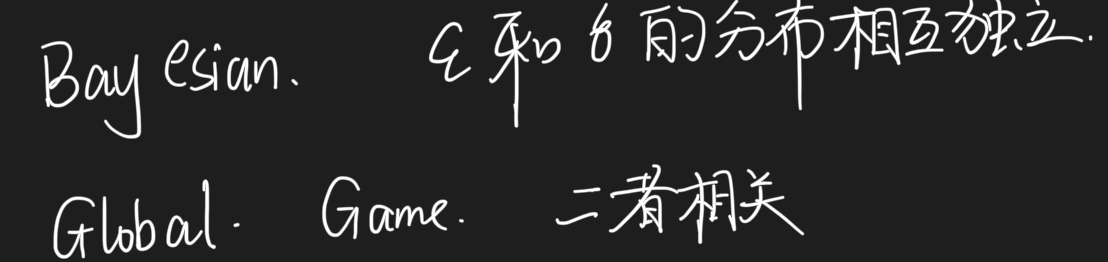 Bayesian. ε和δ的分布相互独立.
Global. Game. 二者相关